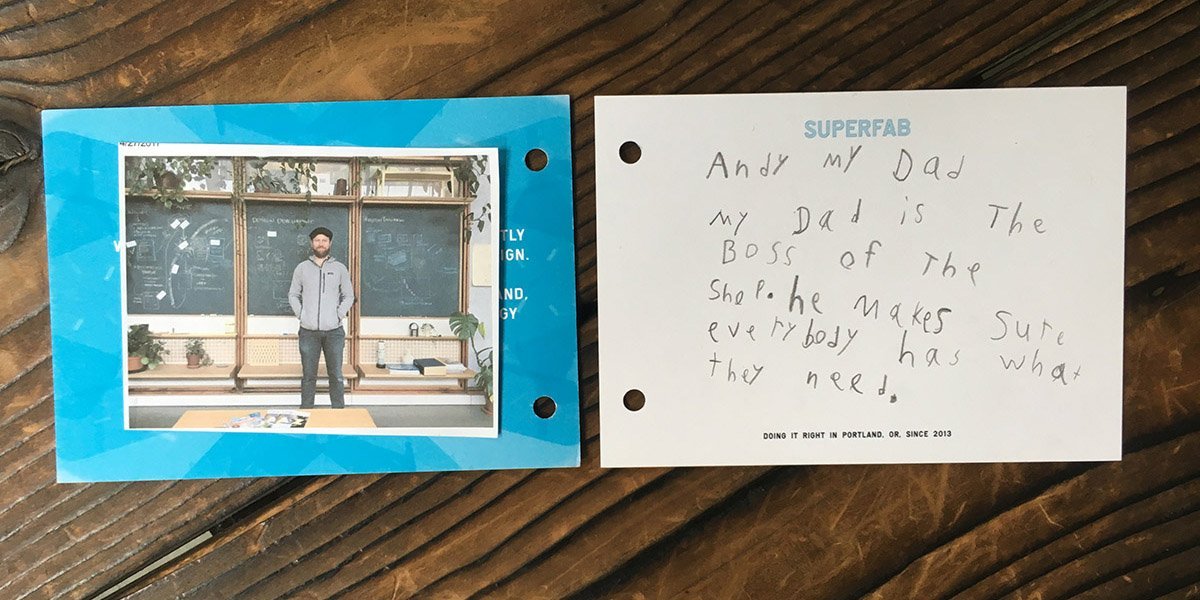 4/27/2017
TLY
IGN.
AND,
GY
SUPERFAB
Andy my Dad
my Dad is The
Boss of The
Shop. he makes Sure
everybody has what
they need.
DOING IT RIGHT IN PORTLAND, OR, SINCE 2013